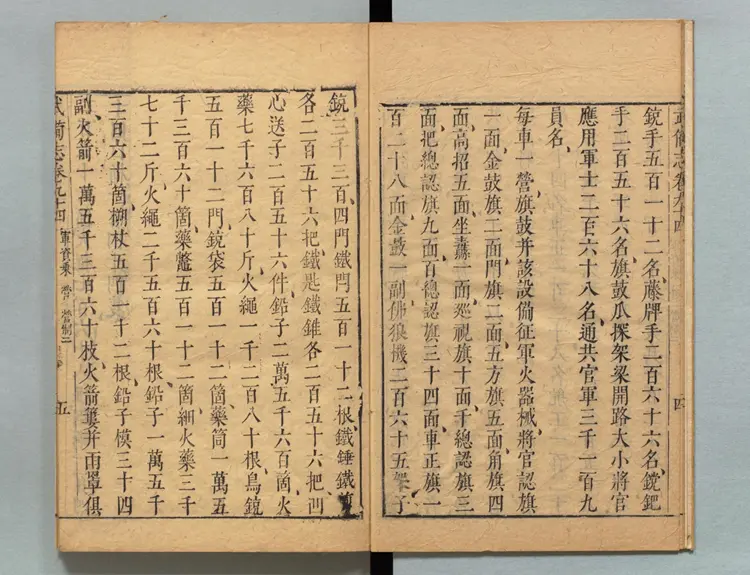 武備志卷九十四 四
銃手五百一十二名藤牌手二百六十六名钂鈀
手二百五十六名旗鼓爪探架梁開路大小將官
應用軍士二百六十八名通共官軍三千一百九
員名
每車一營旗鼓并該設備征軍火器械將官認旗
一面金鼓旗二面門旗二面五方旗五面角旗四
面高招五面坐纛一面廵視旗十面千總認旗三
面把總認旗九面百總認旗三十四面車正旗一
百二十八面金鼓一副佛狼機二百六十五架子
銃三千三百四門鐵閂五百一十二根鐵錘鐵剪
各二百五十六把鐵匙鐵錐各二百五十六把凹
心送子二百五十六件鉛子二萬五千六百箇火
藥七千六百八十斤火繩一千二百八十根鳥銃
五百一十二門銃袋五百一十二箇藥筒一萬五
千三百六十箇藥鱉五百一十二箇細火藥三千
七十二斤火繩二千五百六十根鉛子一萬五千
三百六十箇搠杖五百一十二根鉛子模三十四
副火箭一萬五千三百六十枝火箭簍并雨罩俱
武備志卷九十四 軍資乘 營 營制二 五